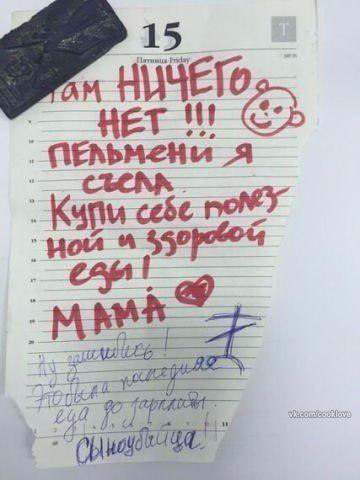 15
Пятница Friday
Т
там НИЧЕГО
НЕТ !!!
ПЕЛЬМЕНИ Я
СЪЕЛА
Купи себе полез-
ной и здоровой
еды!
МАМА
Ну зашибись!
Это была последняя
еда до зарплаты.
Сыноубийца!
vk.com/cooklove